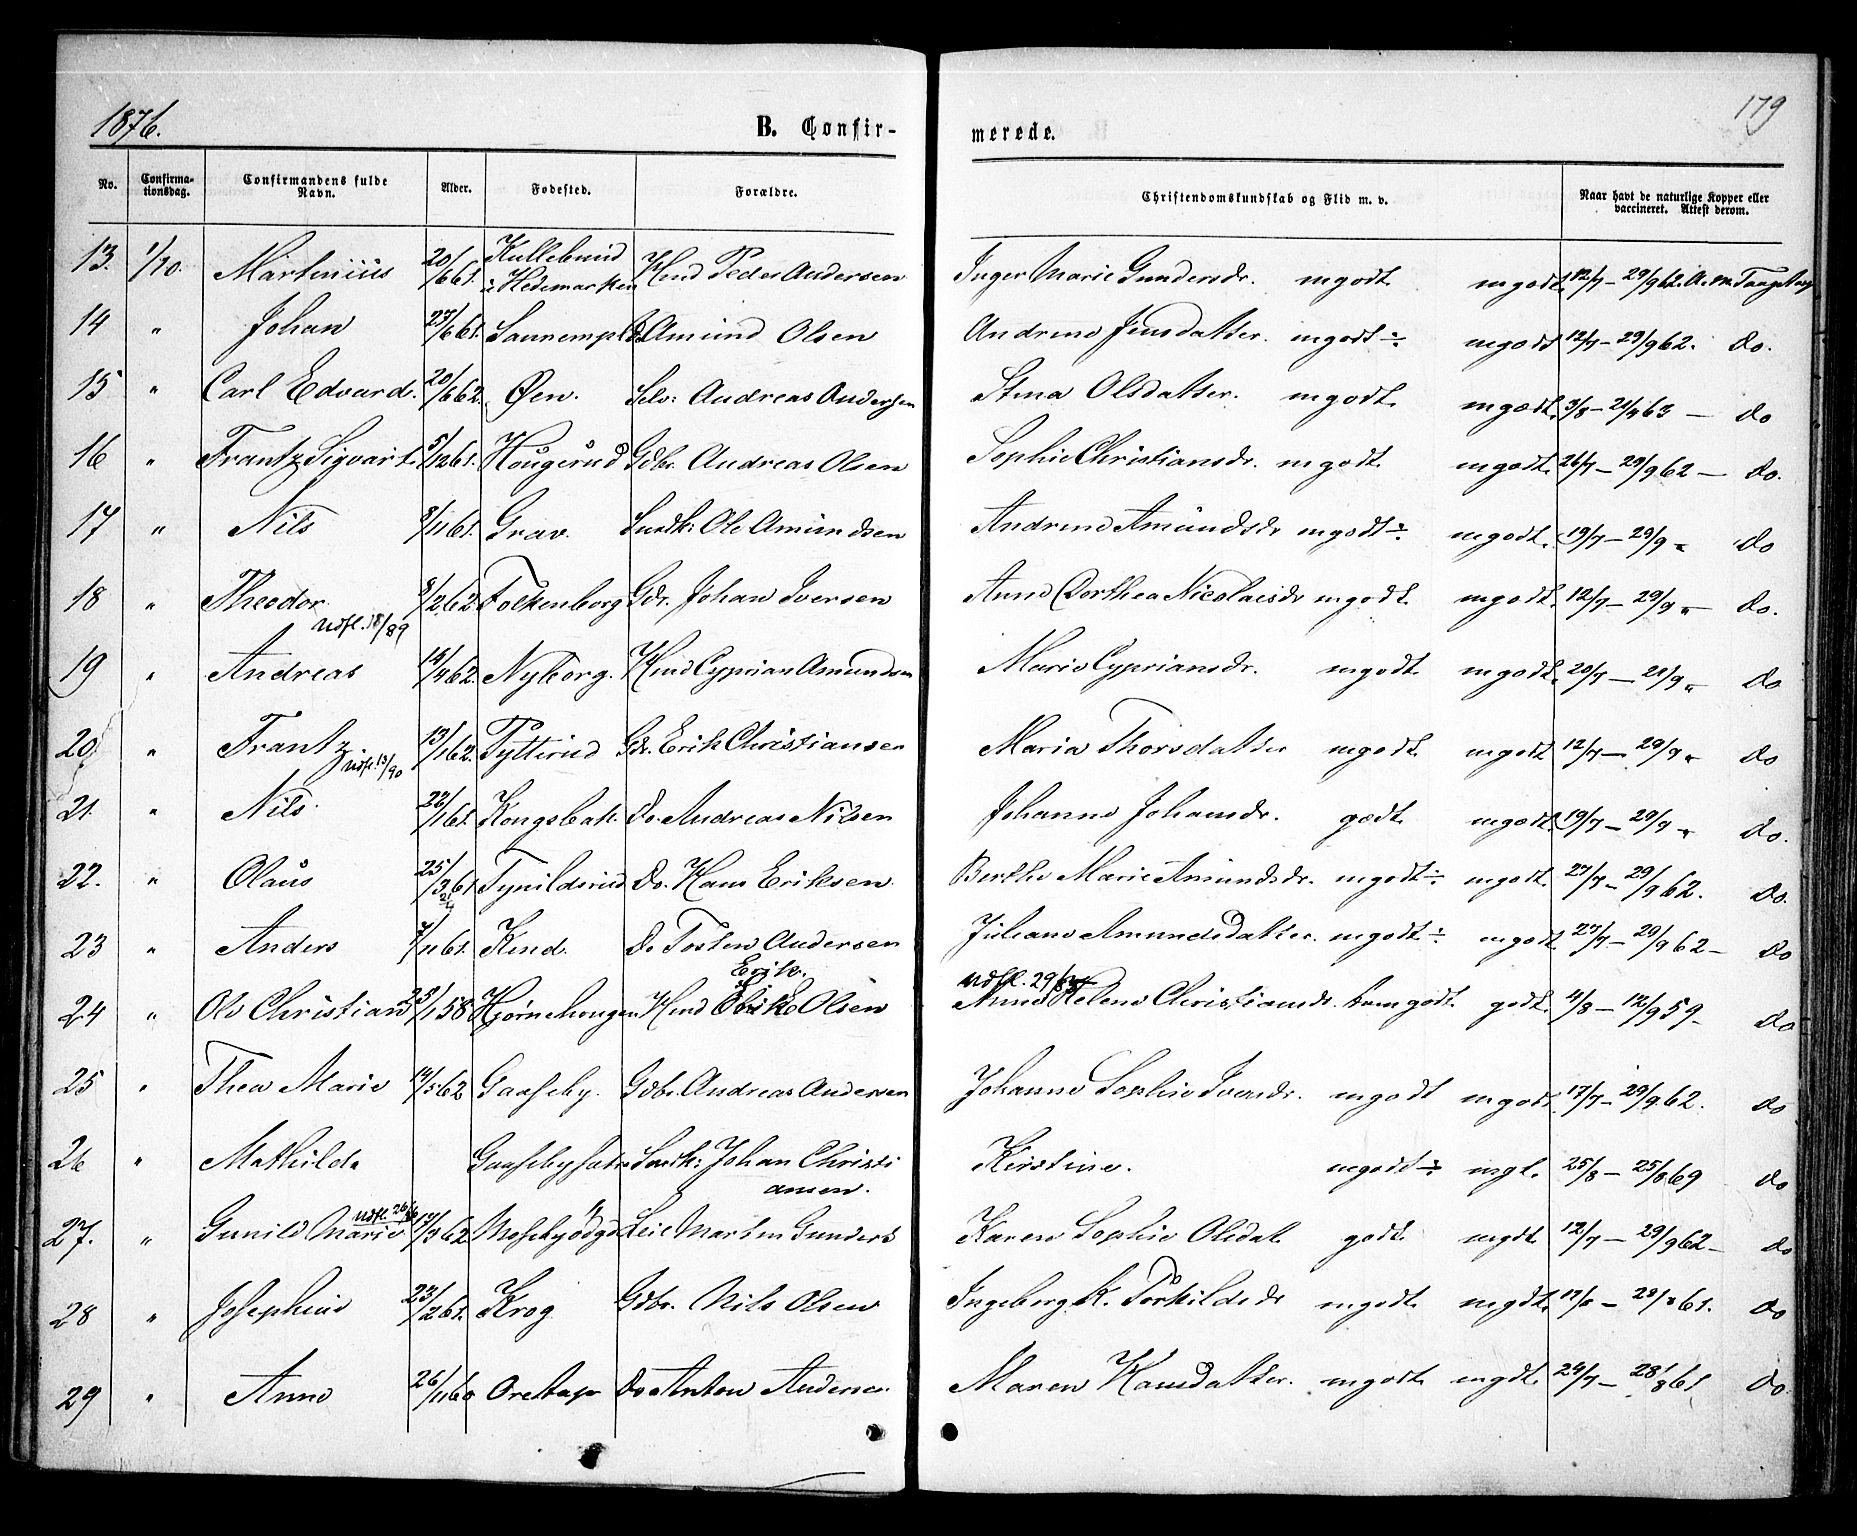 1876.
B. Confir-
merede.
179
No.
Confirma-
tionsdag.
Confirmandens fulde
Navn.
Alder.
Fødested.
Forældre.
Christendomskundskab og Flid m. v.
Naar havt de naturlige Kopper eller
vaccineret. Attest derom.
13. 1/10. Martinius 20/6 61. Kullebund i Hedemarken Hmd Peder Andersen Inger Marie Gundersdr. mgodt mgodt. 12/7 – 29/9 62. A. v.
14 " Johan 27/6 61. Amund Olsen Andrine Jensdatter. mgodt ÷. mgodt 12/7 – 29/9 62. do.
15 " Carl Edvard. 20/6 62. Øen. Selv: Andreas Andersen Stina Olsdatter. mgodt. mgodt. 3/8 – 21/8 63 – do
16 " Frantz Sigvart. 5/12 61. Hougerud Gdbr. Andreas Olsen Sophie Christiansdr. mgodt. mgodt. 26/7 – 29/9 62 – do.
17 " Nils 8/11 61. Grav. Ole Amundsen Andrine Amundsdr mgodt ÷. mgodt. 19/7 – 29/9 " do
18 " Theodor. 9/2 62. Folkenborg Gdr. Johan Iversen Anne Dorthea Nicolaisdr mgodt. mgodt. 12/7 – 29/9 " do.
Udfl. 18/ 89
19 " Andreas 14/4 62. Nyborg. Hmd Cyprian Amundsen Marie Cypriansdr. mgodt mgodt. 20/7 – 21/9 " do
20 " Frantz 13/1 62. Tytterud Gdr. Erik Christiansen Maria Thorsdatter mgodt mgodt 12/7 – 29/9 " do
Udfl. 13/ 90
21. " Nils. 22/1 61. Kongsbak. do. Andreas Nilsen Johanne Johansdr. godt. mgodt. 19/7 – 29/9 " do.
22. " Olaus 25/3 61 Do. Hans Eriksen. Berthe Marie Amundsdr. mgodt ÷. mgodt. 27/7 – 29/9 62. do.
23 " Anders 7/11 61. Kind. do Andersen Juliane Amundsdatter. mgodt ÷. mgodt. 27/7 – 29/9 62 – do
Erik.
Udfl. 29/
24 " Ole Christian 28/1 58 Hjørnehougen Hmd Olsen Anne Helene Christiansdr. godt. 4/8 – 12/9 59 – do
25 " Thea Marie 14/5 62 Gaaseby. Gdbr. Andreas Andersen Johanne Sophie Iversdr. mgodt mgodt. 17/7 – 29/9 62. do
26 " Mathilde Johan Christi Kirstine. mgodt ÷. mgt. 25/8 – 25/8 69 do
ansen.
Udfl. 26/
27. " Gunild Marie 17/3 62 Martin Gunders Karen Sophie Olsdat. godt. mgdt. 12/7 – 29/9 62 – do
28 " Josephine 23/2 61. Krog Gdbr. Nils Olsen Ingeborg K. Torkildsdr mgodt. mgdt. 28/8 61. do
29 " Anne 26/11 60 do Anton Andersen. Maren Hansdatter. mgodt mgdt. 24/7 – 28/8 61 do.